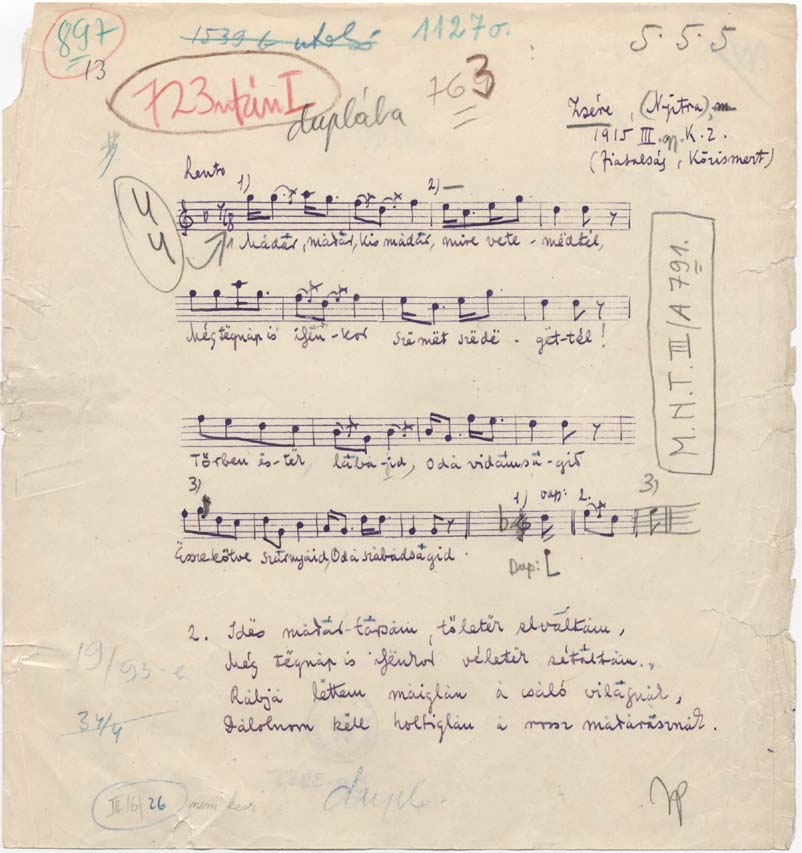 897
13
1539 utolsó
11270.
5. 5. 5
723 után I
duplába
763
Zsére, (Nyitra),
1915 III. K. Z.
(Fiatalság, Közismert)
Lento
1) 2)
4
4
Mádár, mádár, kis mádár, mire vete-médtél,
Még tëgnáp is ifén-kor szëmët szëdë-gët-tél!
Tőrben es-tek lábá-id, Odá vidámsá-gid
3)
Össze kötve szárnyáid, Odá szábádságid.
1) 2. 3)
Dup:
M.N.T. III/A 791.
2. Idës mádár-társám, tőletëk elváltám,
Még tëgnáp is ifënkor véletëk sétáltám.
Rábjá lëttem máiglán á csáló világnák,
Dálolnom këll holtiglán á rossz mádárásznák.
19/93-e
34/4
III/6/26
dupl.